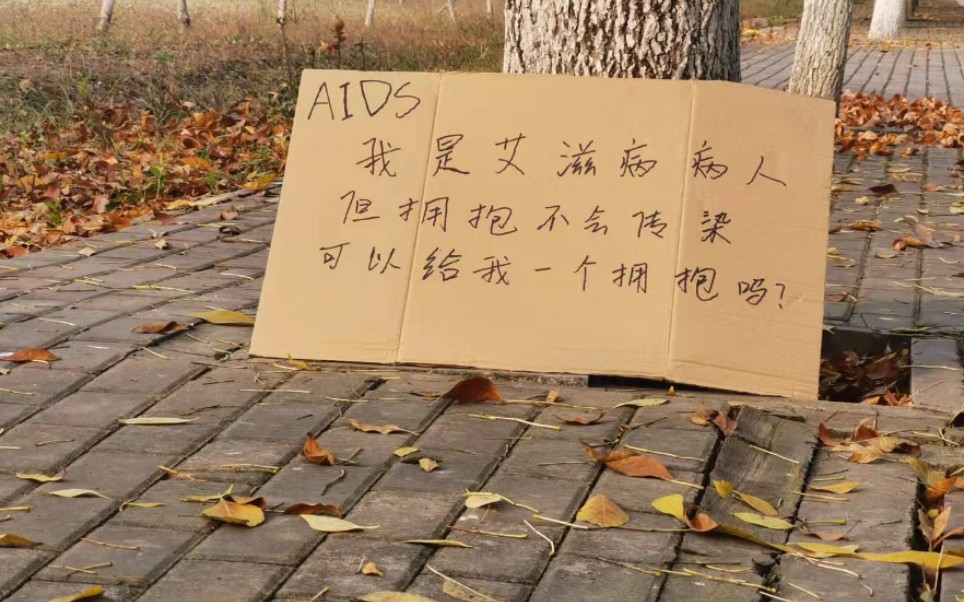 AIDS
我是艾滋病病人
但拥抱不会传染
可以给我一个拥抱吗?